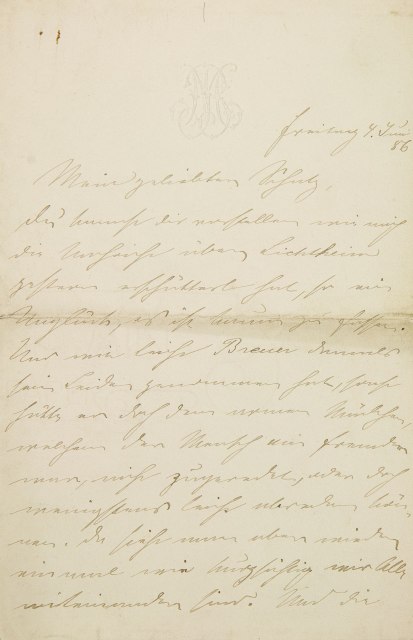 Freitag 4. Juni
86
Mein geliebter Schatz,
Du kannst dir vorstellen wie mich
die Nachricht über Lichtheim
gestern erschüttert hat, so ein
Unglück, es ist kaum zu fassen.
Und wie leicht Breuer damals
sein Leiden genommen hat, sonst
hätte er doch dem armen Mädchen,
welchem der Mensch ein Fremder
war, nicht zugeredet, oder doch
wenigstens leicht abreden kön-
nen. Du siehst nun aber wieder
einmal wie kurzsichtig wir Alle
miteinander sind. Und die